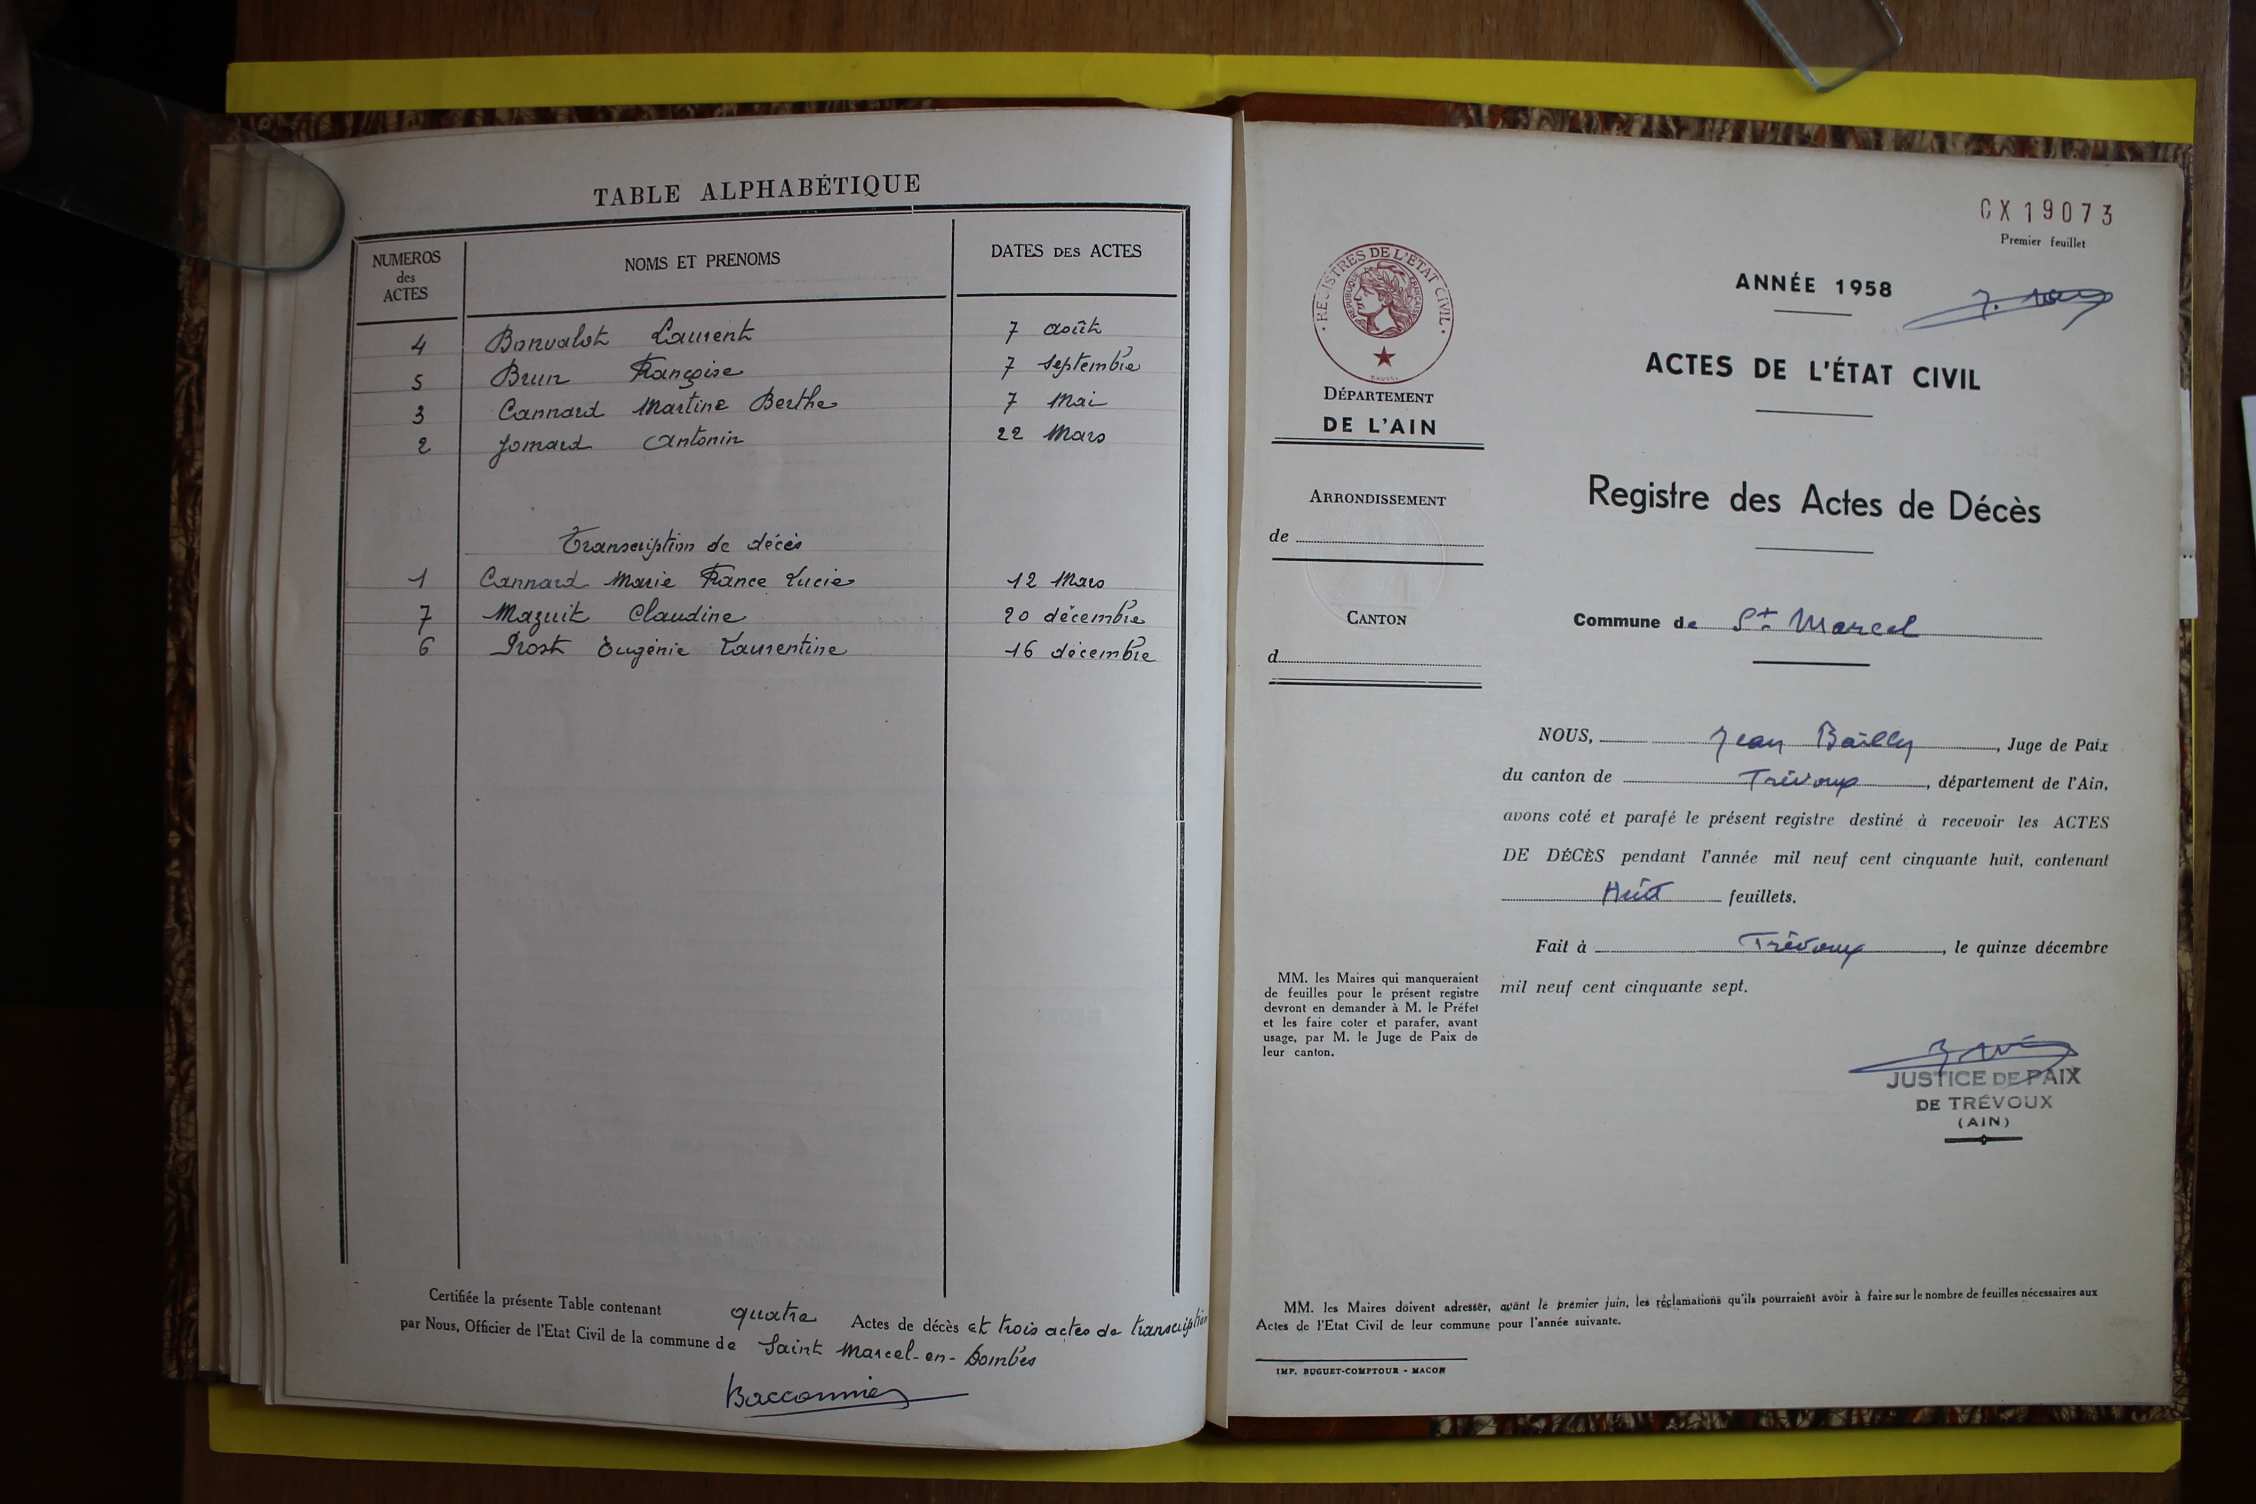 TABLE ALPHABÉTIQUE
NUMEROS des ACTES NOMS ET PRENOMS DATES DES ACTES
4 Bonvalot Laurent 7 août
5 Brun Françoise 7 septembre
3 Cannard Martine Berthe 7 Mai
2 Jomard Antonin 22 Mars
Transcription de décès
1 Cannard Marie France Lucie 12 Mars
7 Mazuit Claudine 20 décembre
6 Prost Eugénie Laurentine 16 décembre
Certifiée la présente Table contenant quatre Actes de décès et trois actes de transcription
par Nous, Officier de l'Etat Civil de la commune de Saint Marcel-en-Dombes
CX19073
Premier feuillet
REGISTRES DE L'ÉTAT CIVIL
RÉPUBLIQUE FRANÇAISE
DÉPARTEMENT
DE L'AIN
ARRONDISSEMENT
de
CANTON
d
MM. les Maires qui manqueraient
de feuilles pour le présent registre
devront en demander à M. le Préfet
et les faire coter et parafer, avant
usage, par M. le Juge de Paix de
leur canton.
ANNÉE 1958
ACTES DE L'ÉTAT CIVIL
Registre des Actes de Décès
Commune de St Marcel
NOUS, Jean Bailly, Juge de Paix
du canton de Trévoux, département de l'Ain,
avons coté et parafé le présent registre destiné à recevoir les ACTES
DE DÉCÈS pendant l'année mil neuf cent cinquante huit, contenant
Huit feuillets.
Fait à Trévoux, le quinze décembre
mil neuf cent cinquante sept.
JUSTICE DE PAIX
DE TRÉVOUX
(AIN)
MM. les Maires doivent adresser, avant le premier juin, les réclamations qu'ils pourraient avoir à faire sur le nombre de feuilles nécessaires aux
Actes de l'Etat Civil de leur commune pour l'année suivante.
IMP. BUGUET-COMPTOUR - MACON